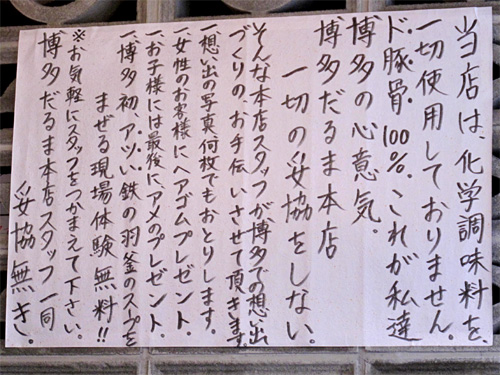 当店は、化学調味料を、
一切使用しておりません。
ド・豚・骨・100%.これが私達
博多の心意気。
博多だるま本店
一切の妥協をしない。
そんな本店スタッフが博多での想い出
づくりの、お手伝いさせて頂きます。
一、想い出の写真、何枚でもおとりします。
一、女性のお客様にヘアゴムプレゼント、
一、お子様には最後に、アメのプレゼント、
一、博多初、アツい鉄の羽釜のスープを
まぜる現場体験無料!!
※お気軽にスタッフをつかまえて下さい。
博多だるま本店スタッフ一同
妥協無き。